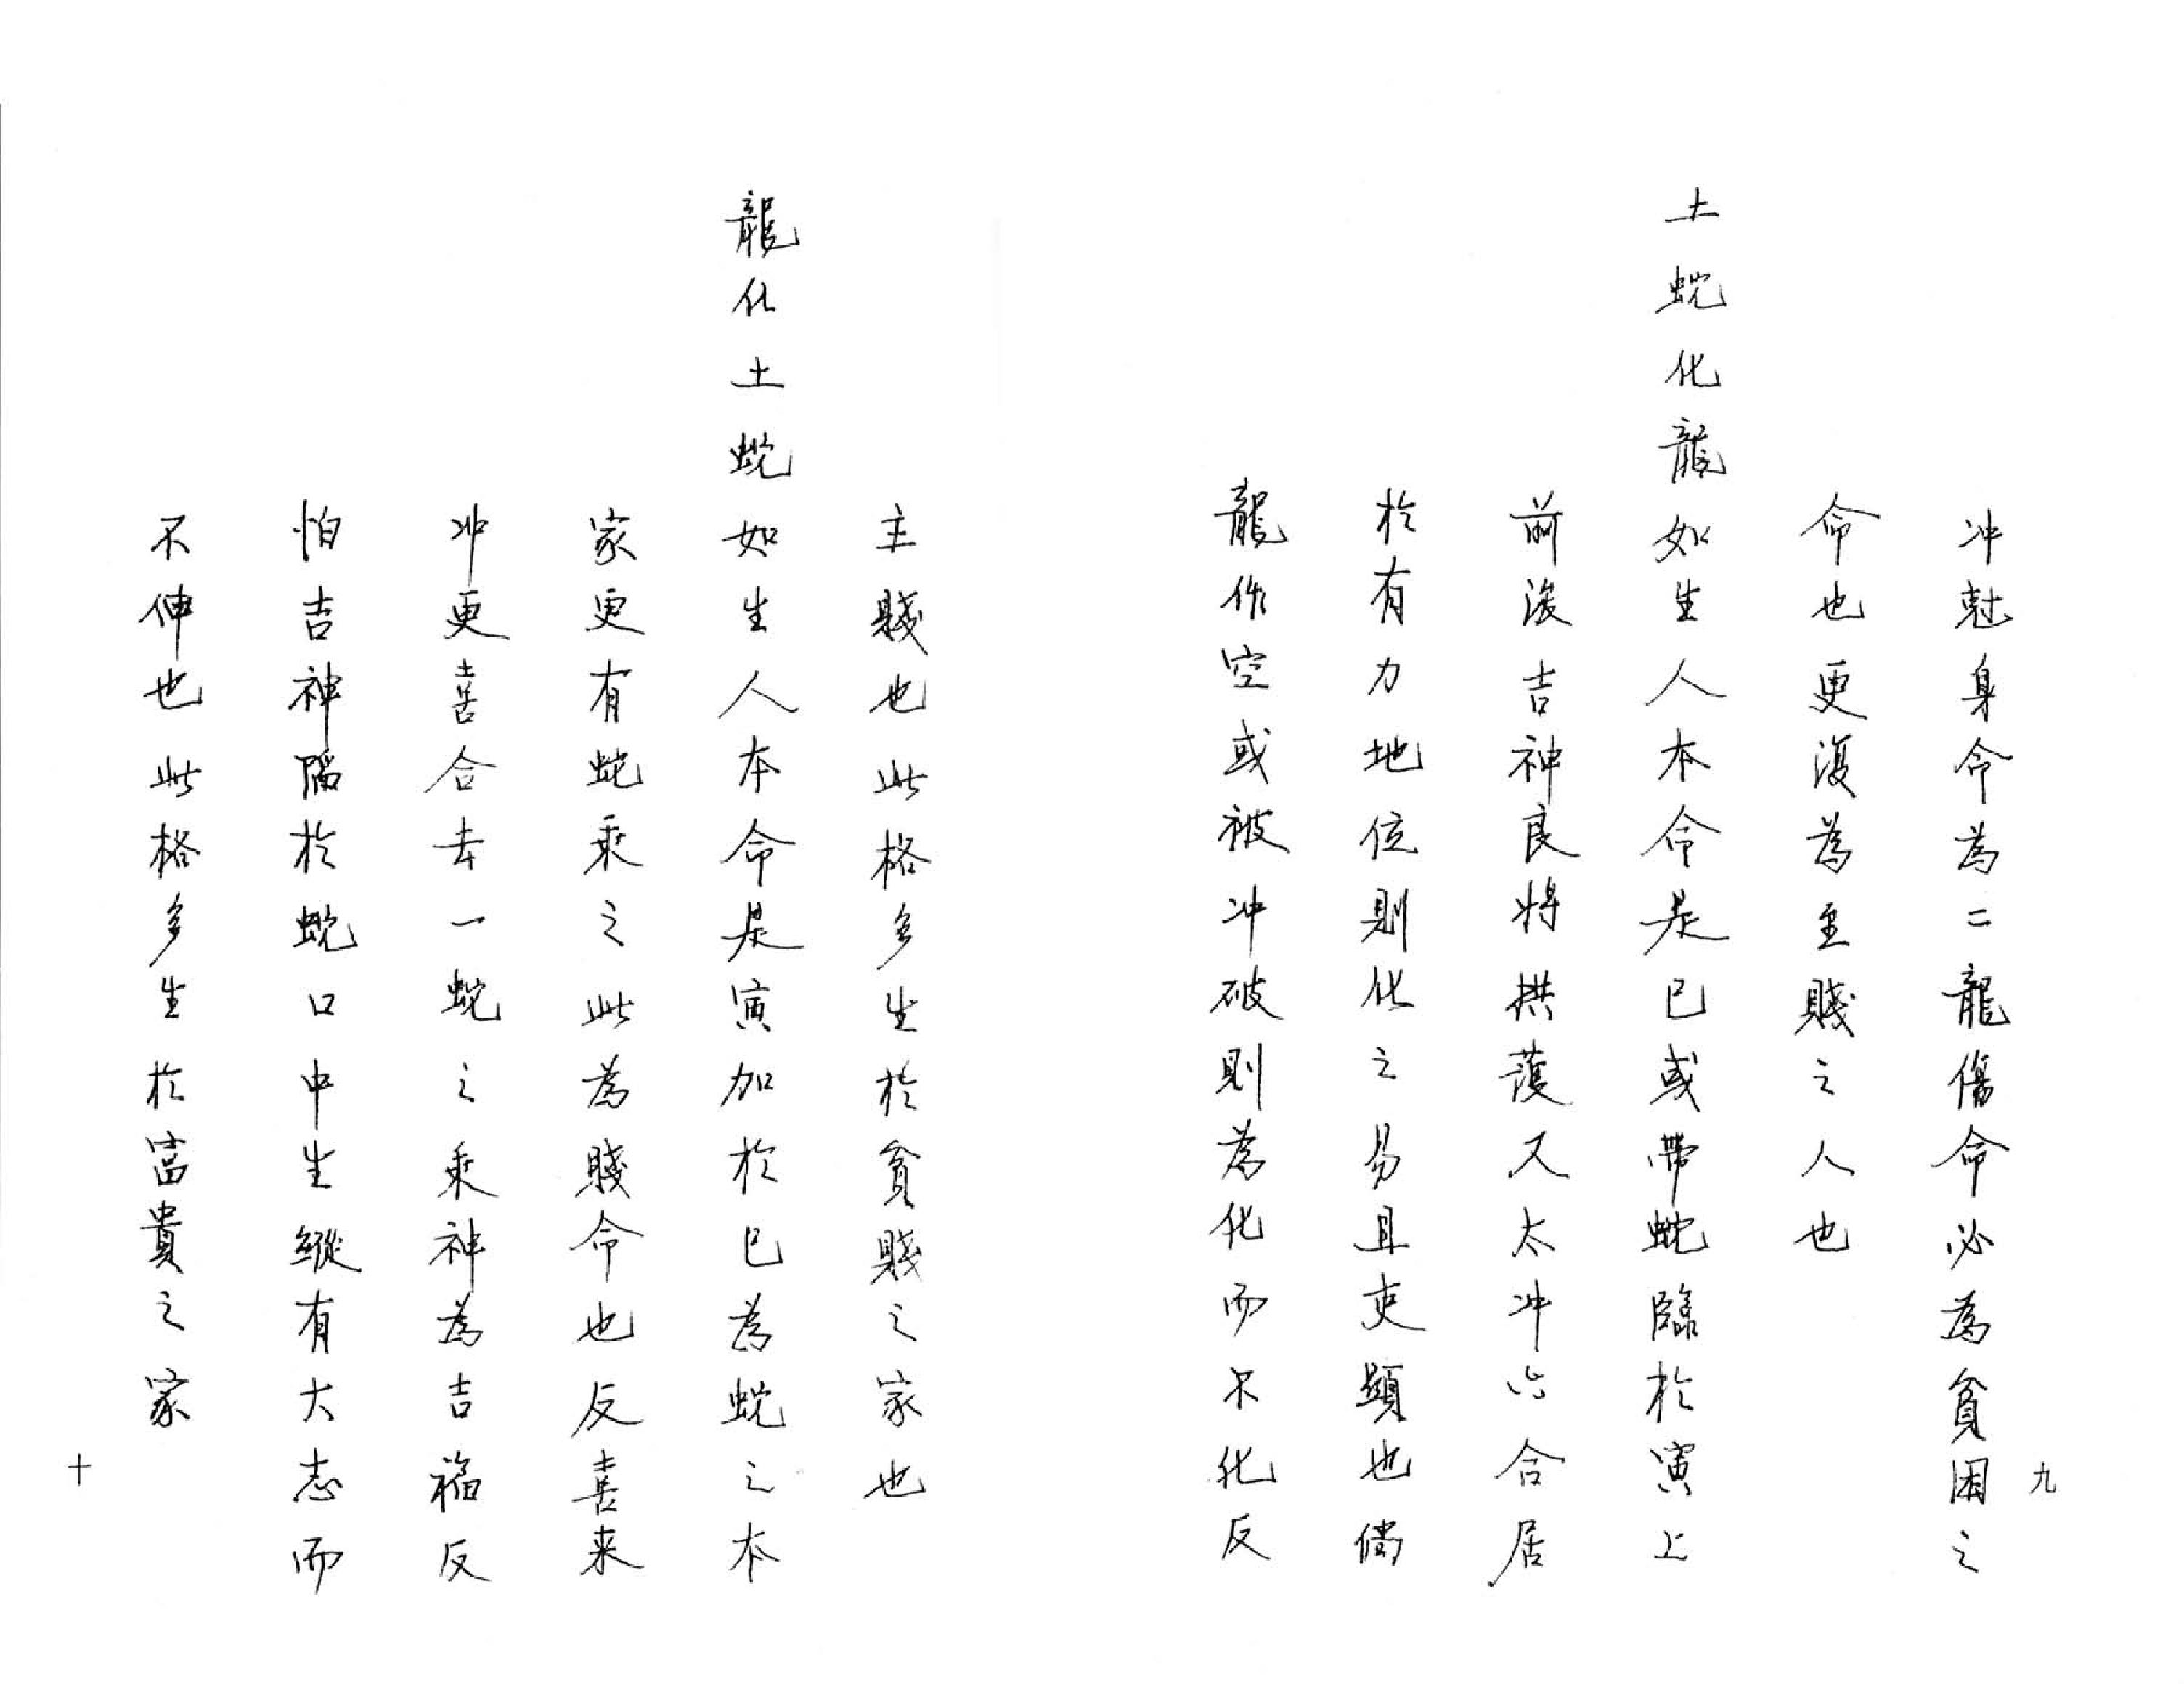 冲尅身命為二龍傷命必為貧困之
命也更復為至賤之人也
土蛇化龍如生人本命是巳或帶蛇臨於寅上
前後吉神良將拱護又太冲六合居
於有力地位則化之易且吏顯也倘
龍作空或被冲破則為化而不化反
九
主賤也此格多生於貧賤之家也
龍化土蛇如生人本命是寅加於巳為蛇之本
家更有蛇乘之此為賤命也反喜来
冲更喜合去一蛇之乘神為吉福反
怕吉神陷於蛇口中生縱有大志而
不伸也此格多生於富貴之家
十